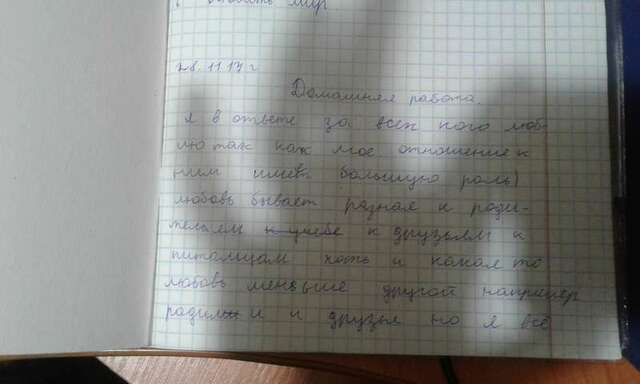 мир
28.11.17 г.
Домашняя работа.
я в ответе за всех кого люб-
лю так как мое отношение к
ним имеет большую роль)
любовь бывает разная к роди-
телям к друзьям к
питомцам хоть и какая то
любовь меньше другой например
родили и и друзья но я всё